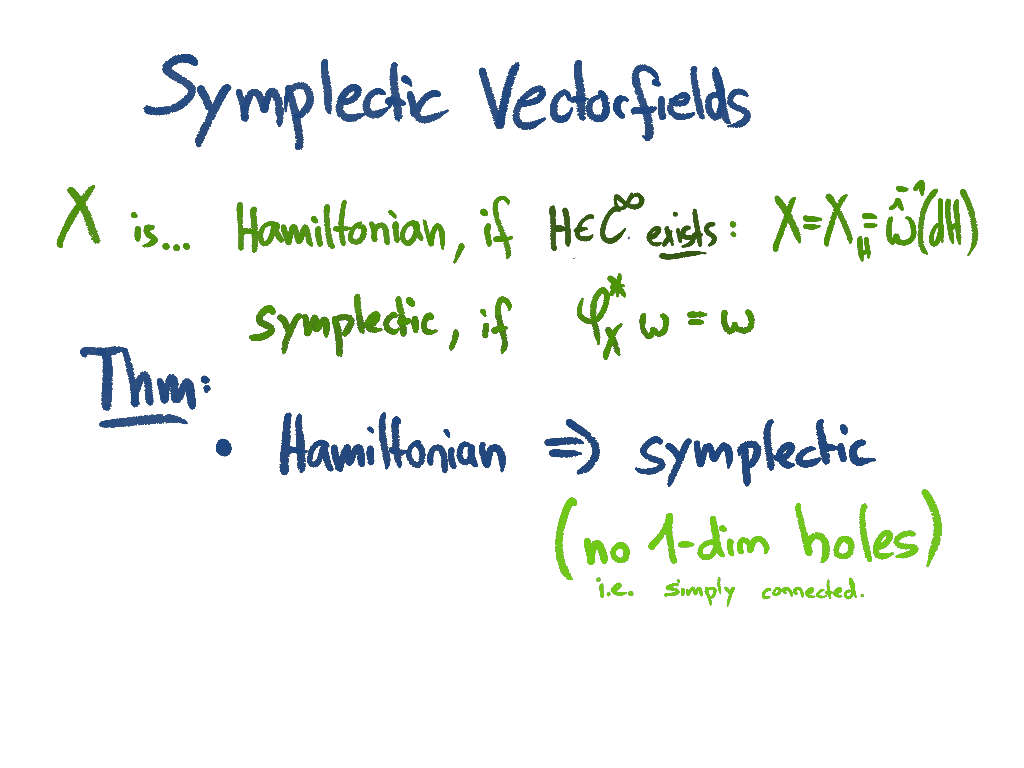 Symplectic Vectorfields
X is... Hamiltonian, if H∈C^∞ exists: X=X_H=ω̂^{-1}(dH)
symplectic, if φ_X^* ω = ω
Thm:
• Hamiltonian ⇒ symplectic
(no 1-dim holes)
i.e. simply connected.